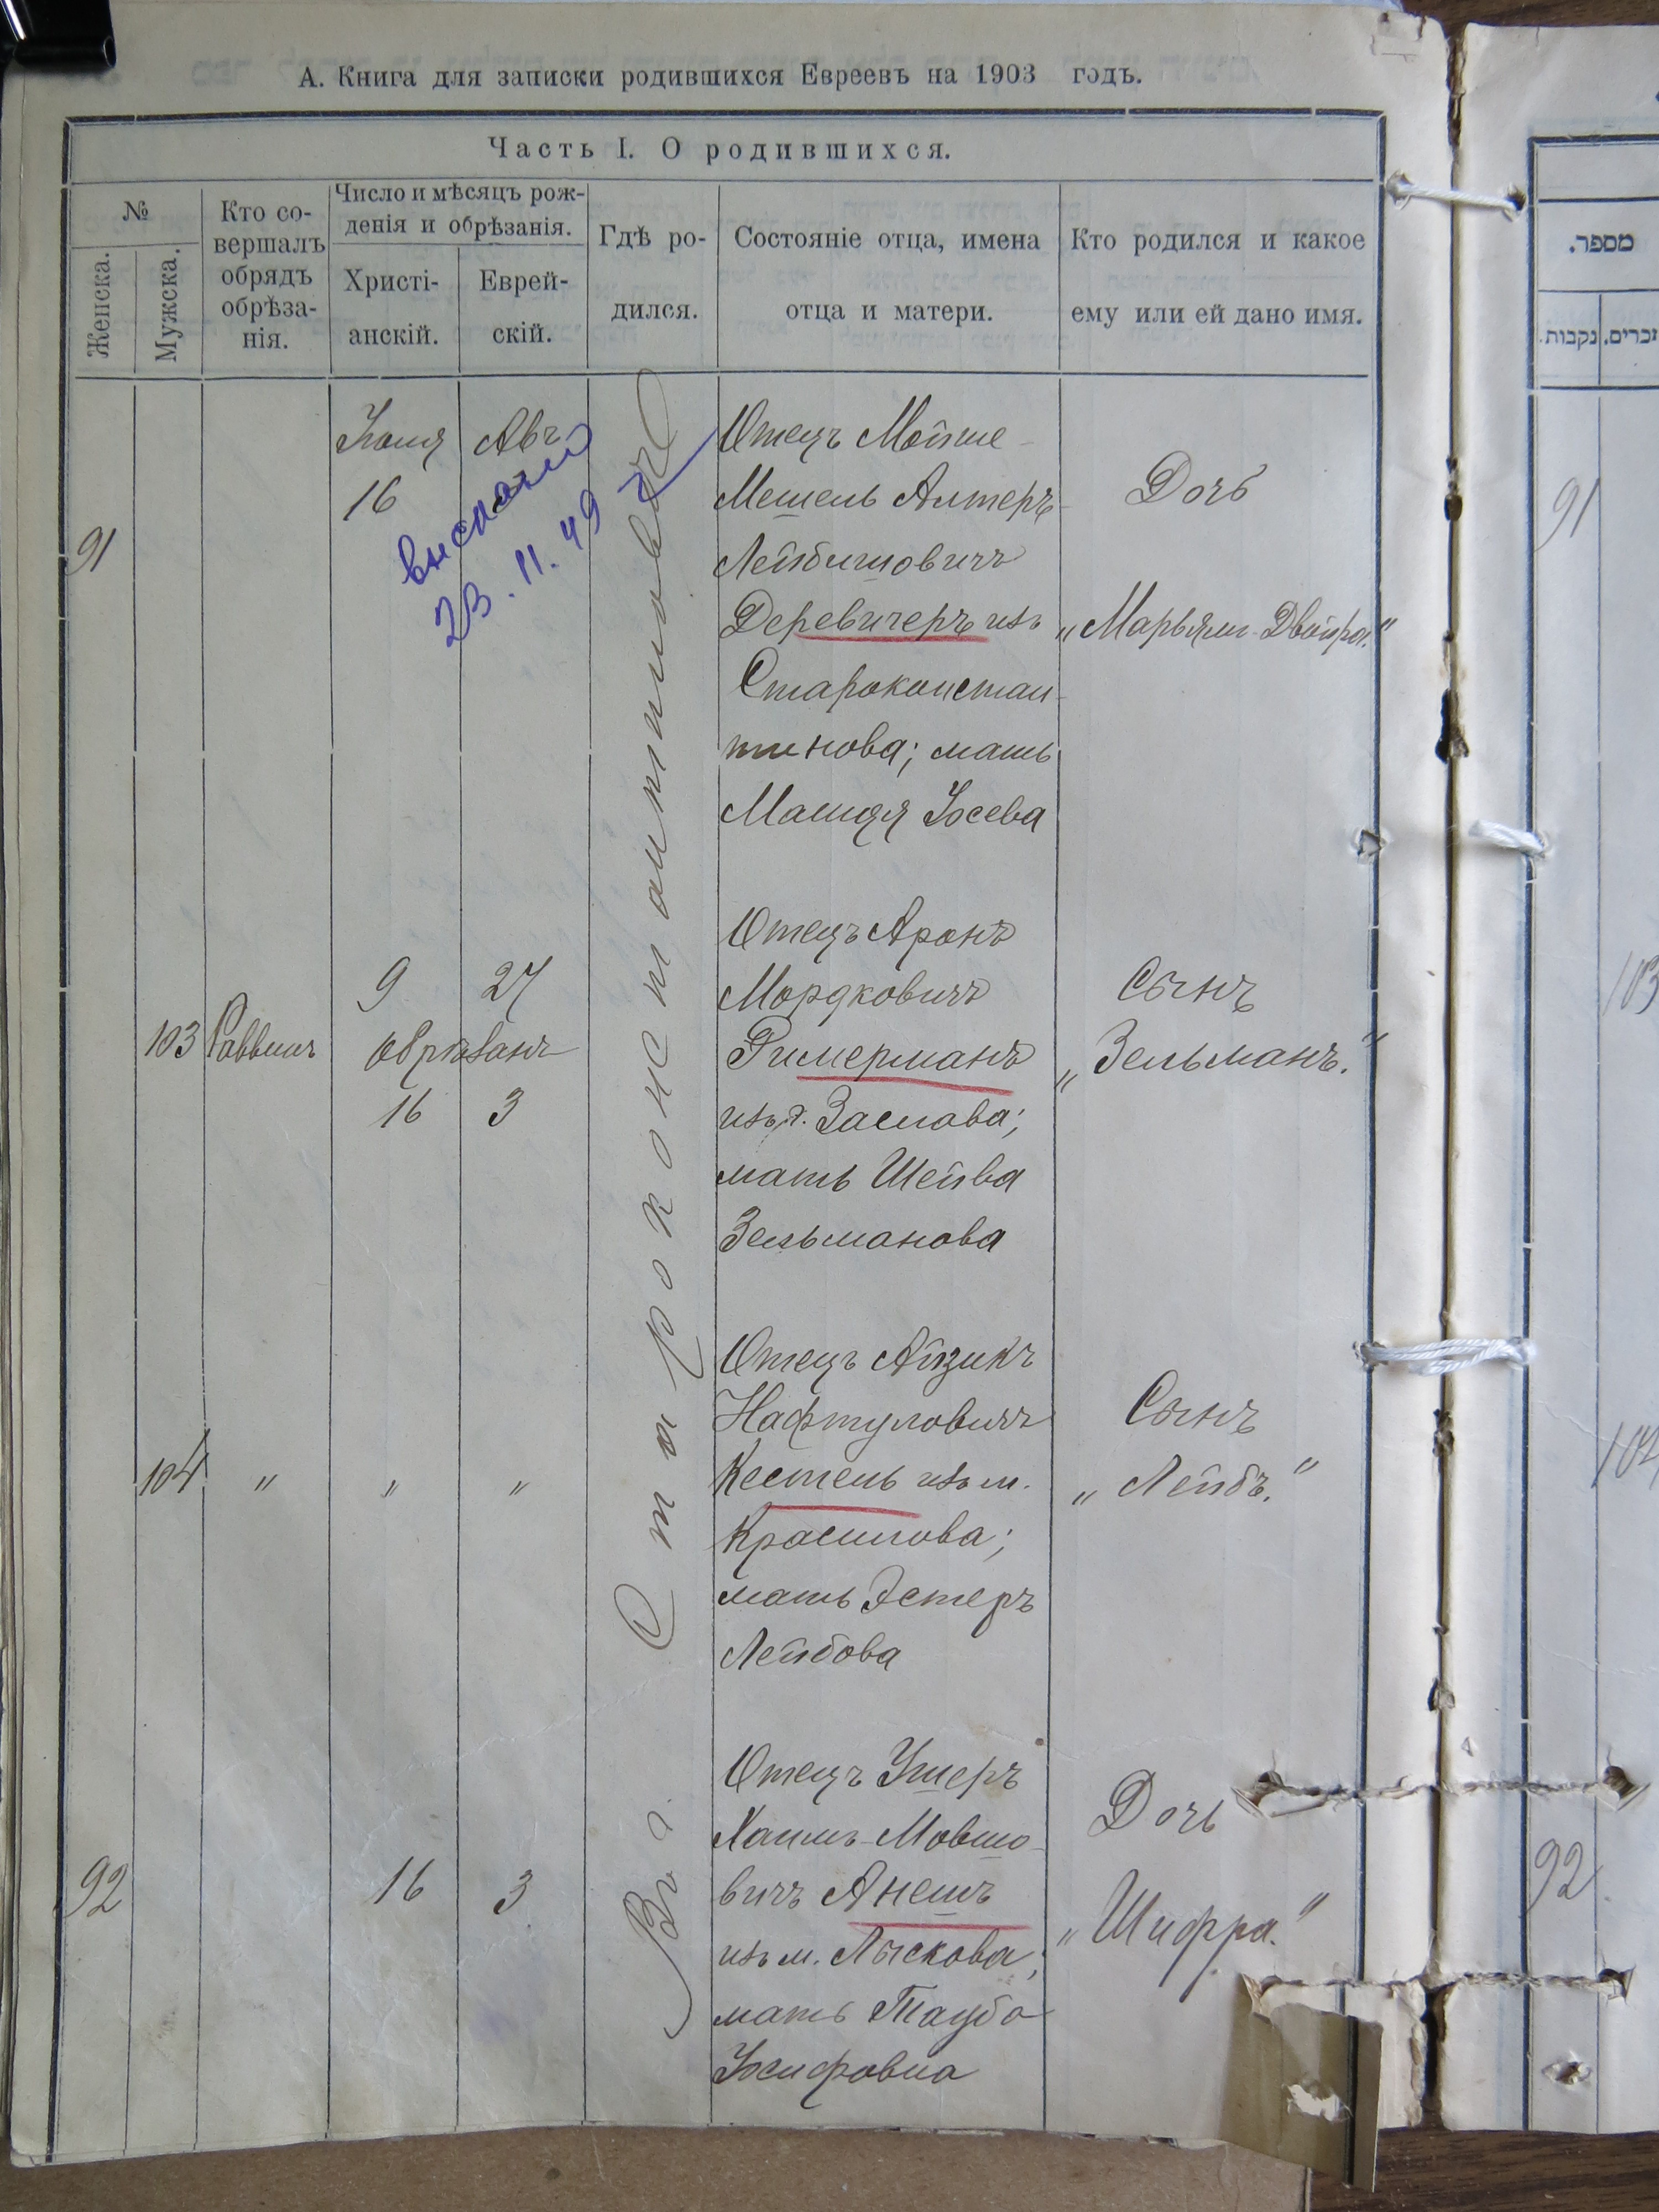 А. Книга для записки родившихся Евреевъ на 1903 годъ.
Часть I. О родившихся.
№
Женска.
Мужска.
Кто со-
вершалъ
обрядъ
обрѣза-
нія.
Число и мѣсяцъ рож-
денія и обрѣзанія.
Христі-
анскій.
Еврей-
скій.
Гдѣ ро-
дился.
Состояніе отца, имена
отца и матери.
Кто родился и какое
ему или ей дано имя.
מספר.
נקבות.
זכרים.
Въ г. Староконстантиновѣ
91
Іюля
16
Авъ
выслано
23.11.49
Отецъ Мойше-
Мешель Алтеръ-
Лейбишовичъ
Деревичеръ изъ
Староконстан-
тинова; мать
Машця Іосева
Дочь
„Марьям-Двойра."
91
103
Раввинъ
9
27
обрѣзанъ
16
3
Отецъ Аронъ
Мордковичъ
Римерманъ
изъ г. Заслава;
мать Шейва
Зельманова
Сынъ
„Зельманъ."
103
104
"
"
"
Отецъ Айзикъ
Нафтуловичъ
Кестель изъ м.
Красилова;
мать Эстеръ
Лейбова
Сынъ
„Лейбъ."
104
92
16
3
Отецъ Ушеръ
Хаимъ-Мовшо-
вичъ Анешъ
изъ м. Лыскова;
мать Тауба
Іосифовна
Дочь
„Шифра."
92